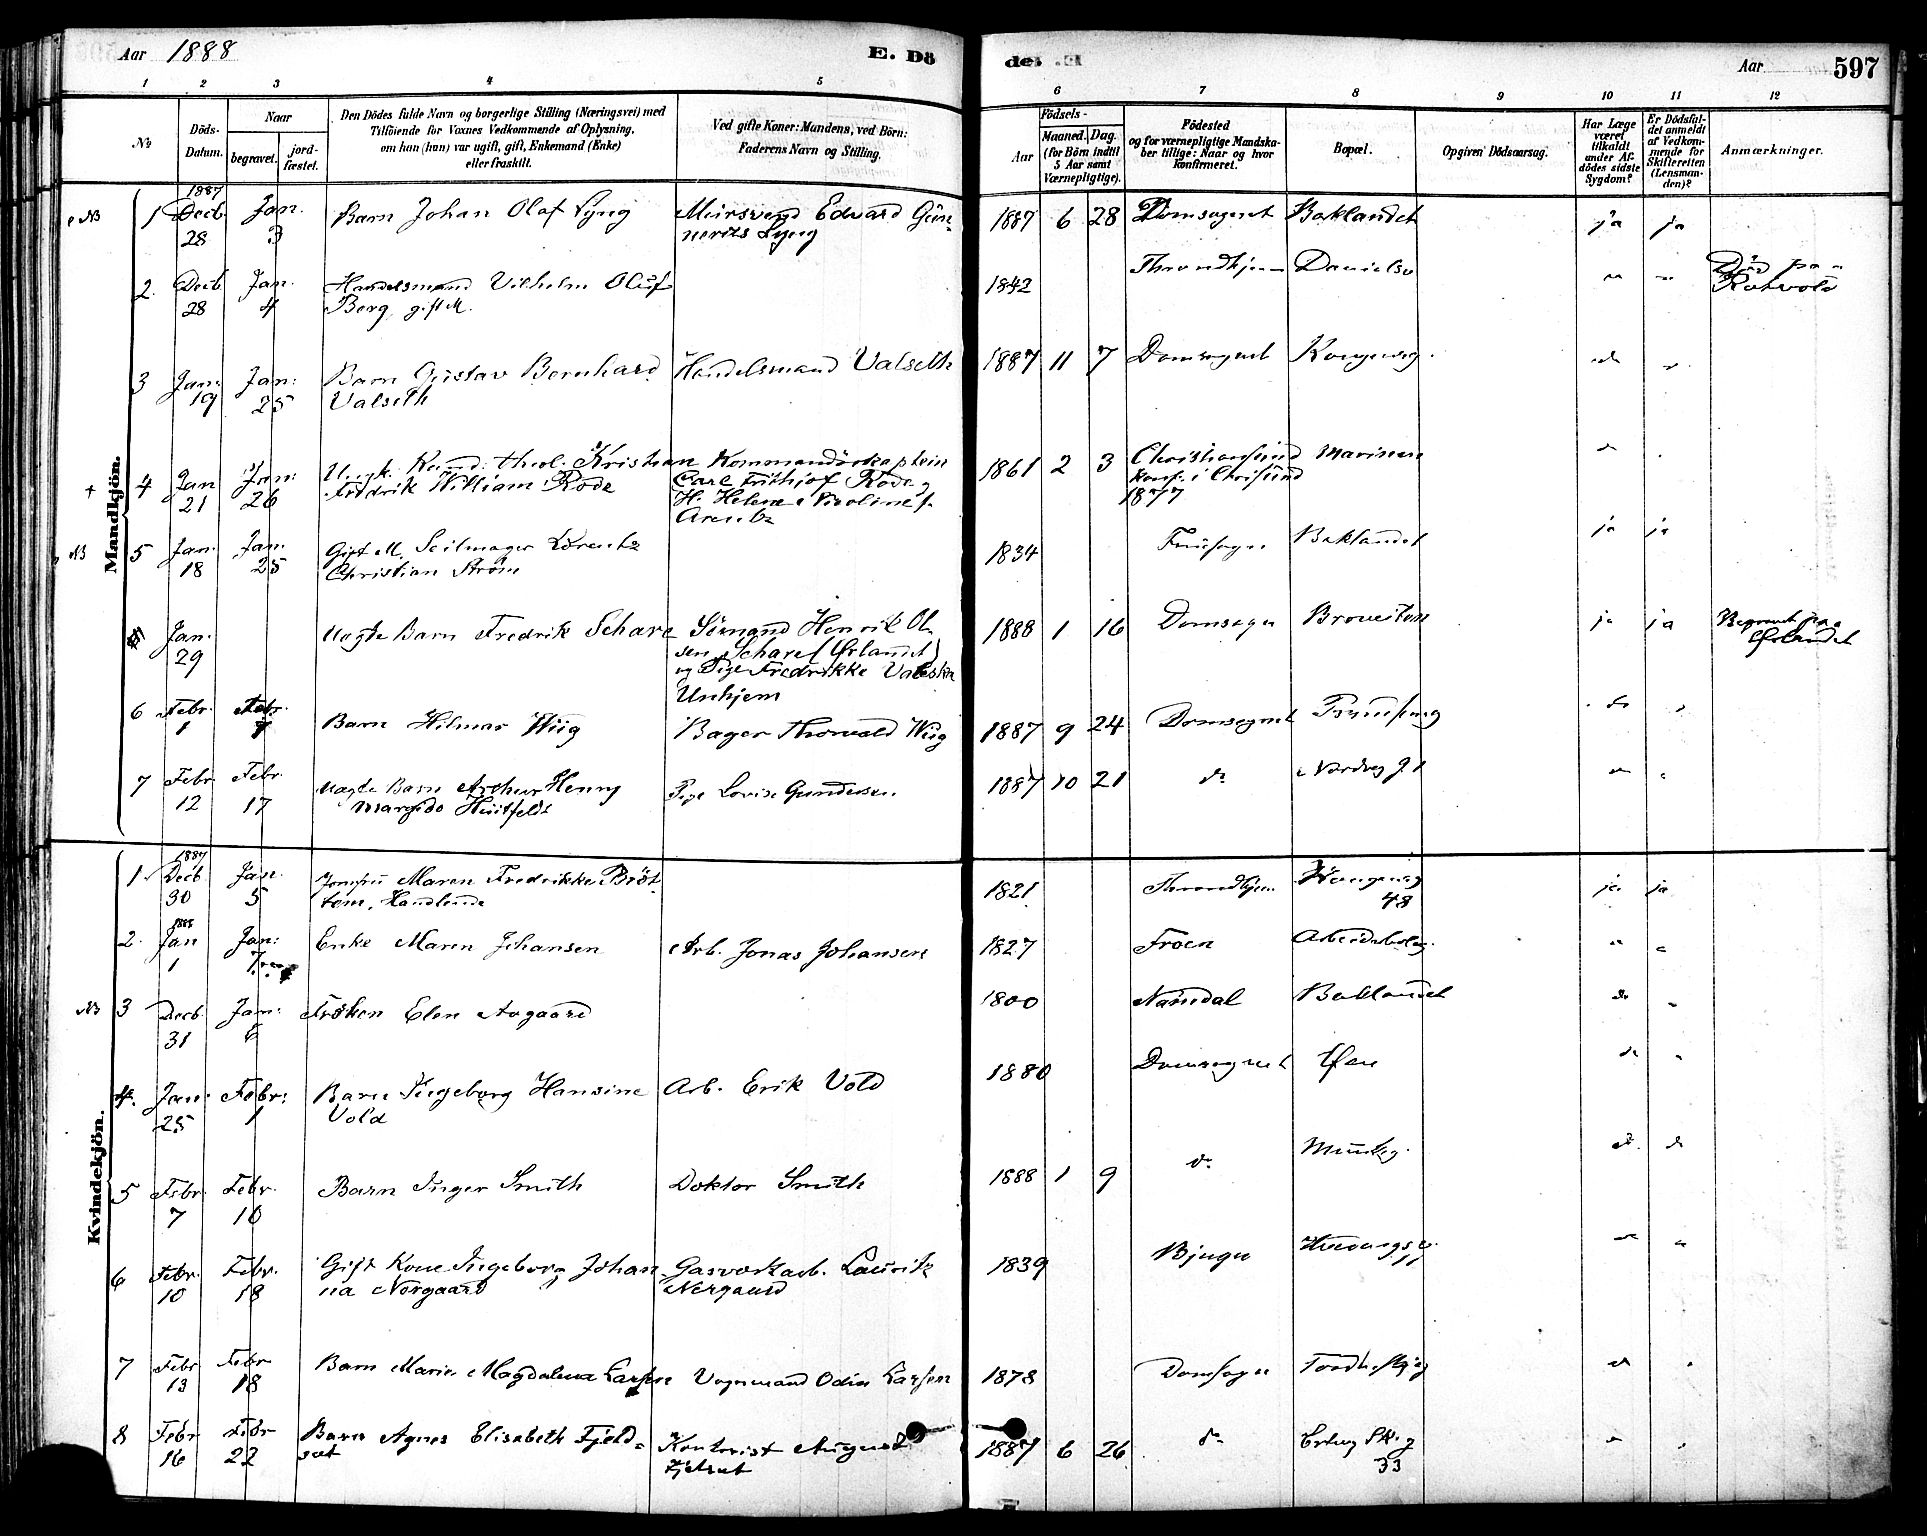 Aar 1888
E. Dö
den E.
Aar
597
1 2 3 4 5 6 7 8 9 10 11 12
No
Döds-
Datum.
Naar
begravet.
jord-
fæstet.
Den Dödes fulde Navn og borgerlige Stilling (Næringsvei) med
Tilföiende for Voxnes Vedkommende af Oplysning,
om han (hun) var ugift, gift, Enkemand (Enke)
eller fraskilt.
Ved gifte Koner: Mandens, ved Börn:
Faderens Navn og Stilling.
Födsels-
Aar
Maaned.
Dag.
(for Börn indtil
5 Aar samt
Værnepligtige).
Födested
og for værnepligtige Mandska-
ber tillige: Naar og hvor
konfirmeret.
Bopæl.
Opgiven Dödsaarsag.
Har Læge
været
tilkaldt
under Af-
dödes sidste
Sygdom?
Er Dödsfal-
det anmeldt
af Vedkom-
mende for
Skifteretten
(Lensman-
den)?
Anmærkninger.
Mandkjön.
NB 1 1887 Decb. 28 Jan. 3 Barn Johan Olaf Lyng Muirsvend Edvard Gun-
nerius Lyng 1887 6 28 Domsognet Baklandet ja ja
2. Decb 28 Jan. 4 Handelsmand Vilhelm Oluf
Berg gift M. 1842 Throndhjem Danielsv Död paa
Rotvold
3 Jan: 19 Jan: 25 Barn Gustav Bernhard
Valseth Handelsmand Valseth 1887 11 7 Domsognet Kongensg.
4 Jan 21 Jan: 26 Ungk. Kand. theol. Kristian
Fredrik William Rode Kommandörkaptein
Carl Frithjof Rode og
H. Helene Nicoline f.
1861 2 3 Christiansund
konf. i Chrisund
1877
NB 5 Jan. 18 Jan. 25 Gift M. Seilmager Lorentz
Christian Ström 1834 Fruesogn Baklandet ja ja
Jan. 29 Uægte Barn Fredrik Schare Sömand Henrik Ol-
sen Schare (Örlandet)
og Pige Fredrikke Valeska
Unhjem 1888 1 16 Domsogn ja ja Begravet paa
Örlandet
6 Febr. 1 Febr. 7 Barn Hilmar Wiig Bager Thorvald Wiig 1887 9 24 Domsognet
7 Febr. 12 Febr. 17 Uægte Barn Arthur Henry
Margido Huitfeldt Pige Lovise Gundersen 1887 10 21 do
Kvindekjön.
1 1887 Decb. 30 Jan. 5 Jomfru Maren Fredrikke Bröt-
tem, Handlende 1821 Throndhjem 48 ja ja
2. 1888 Jan 1 Jan: 7 Enke Maren Johansen Arb. Jonas Johansen 1827 Froen
NB 3 Decb. 31 Jan: 6 Fröken Elen Aagaard 1800 Namdal Baklandet do
4. Jan: 25 Febr: 1 Barn Ingeborg Hansine
Vold Arb. Erik Vold 1880 Domsognet Öen do
5 Febr. 7 Febr. 10 Barn Inger Smith Doktor Smith 1888 1 9 do Munkeg. do do
6 Febr. 10 Febr. 18 Gift Kone Ingeborg Johan-
na Norgaard Gasverksarb. Lauritz
Nergaard 1839 Bjugn 11
7 Febr 13 Febr 18 Barn Marie Magdalena Larsen Vognmand Odin Larsen 1878 Domsogn do
8 Febr 16 Febr 22 Barn Agnes Elisabeth Fjeld-
sæt Kontorist August
Fjelsæt 1887 6 26 do 33